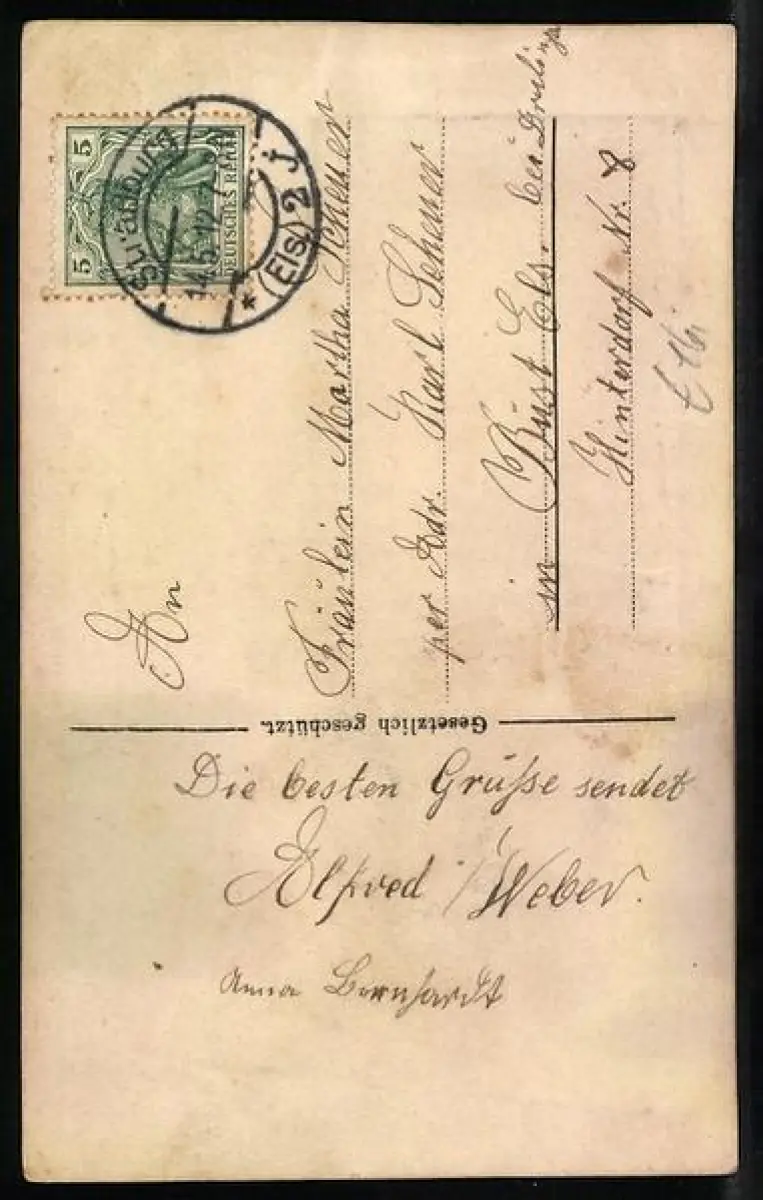 5 5
DEUTSCHES REICH
Straßburg
14.5.12.7-8
* (Els.) 2 j
An
Fräulein Martha Scheuer
per Adr. Karl Scheuer
in Büst Els. bei Drulingen
Hinterdorf Nr. 8
Gesetzlich geschützt.
Die besten Grüße sendet
Alfred Weber.
Anna Bernhardt